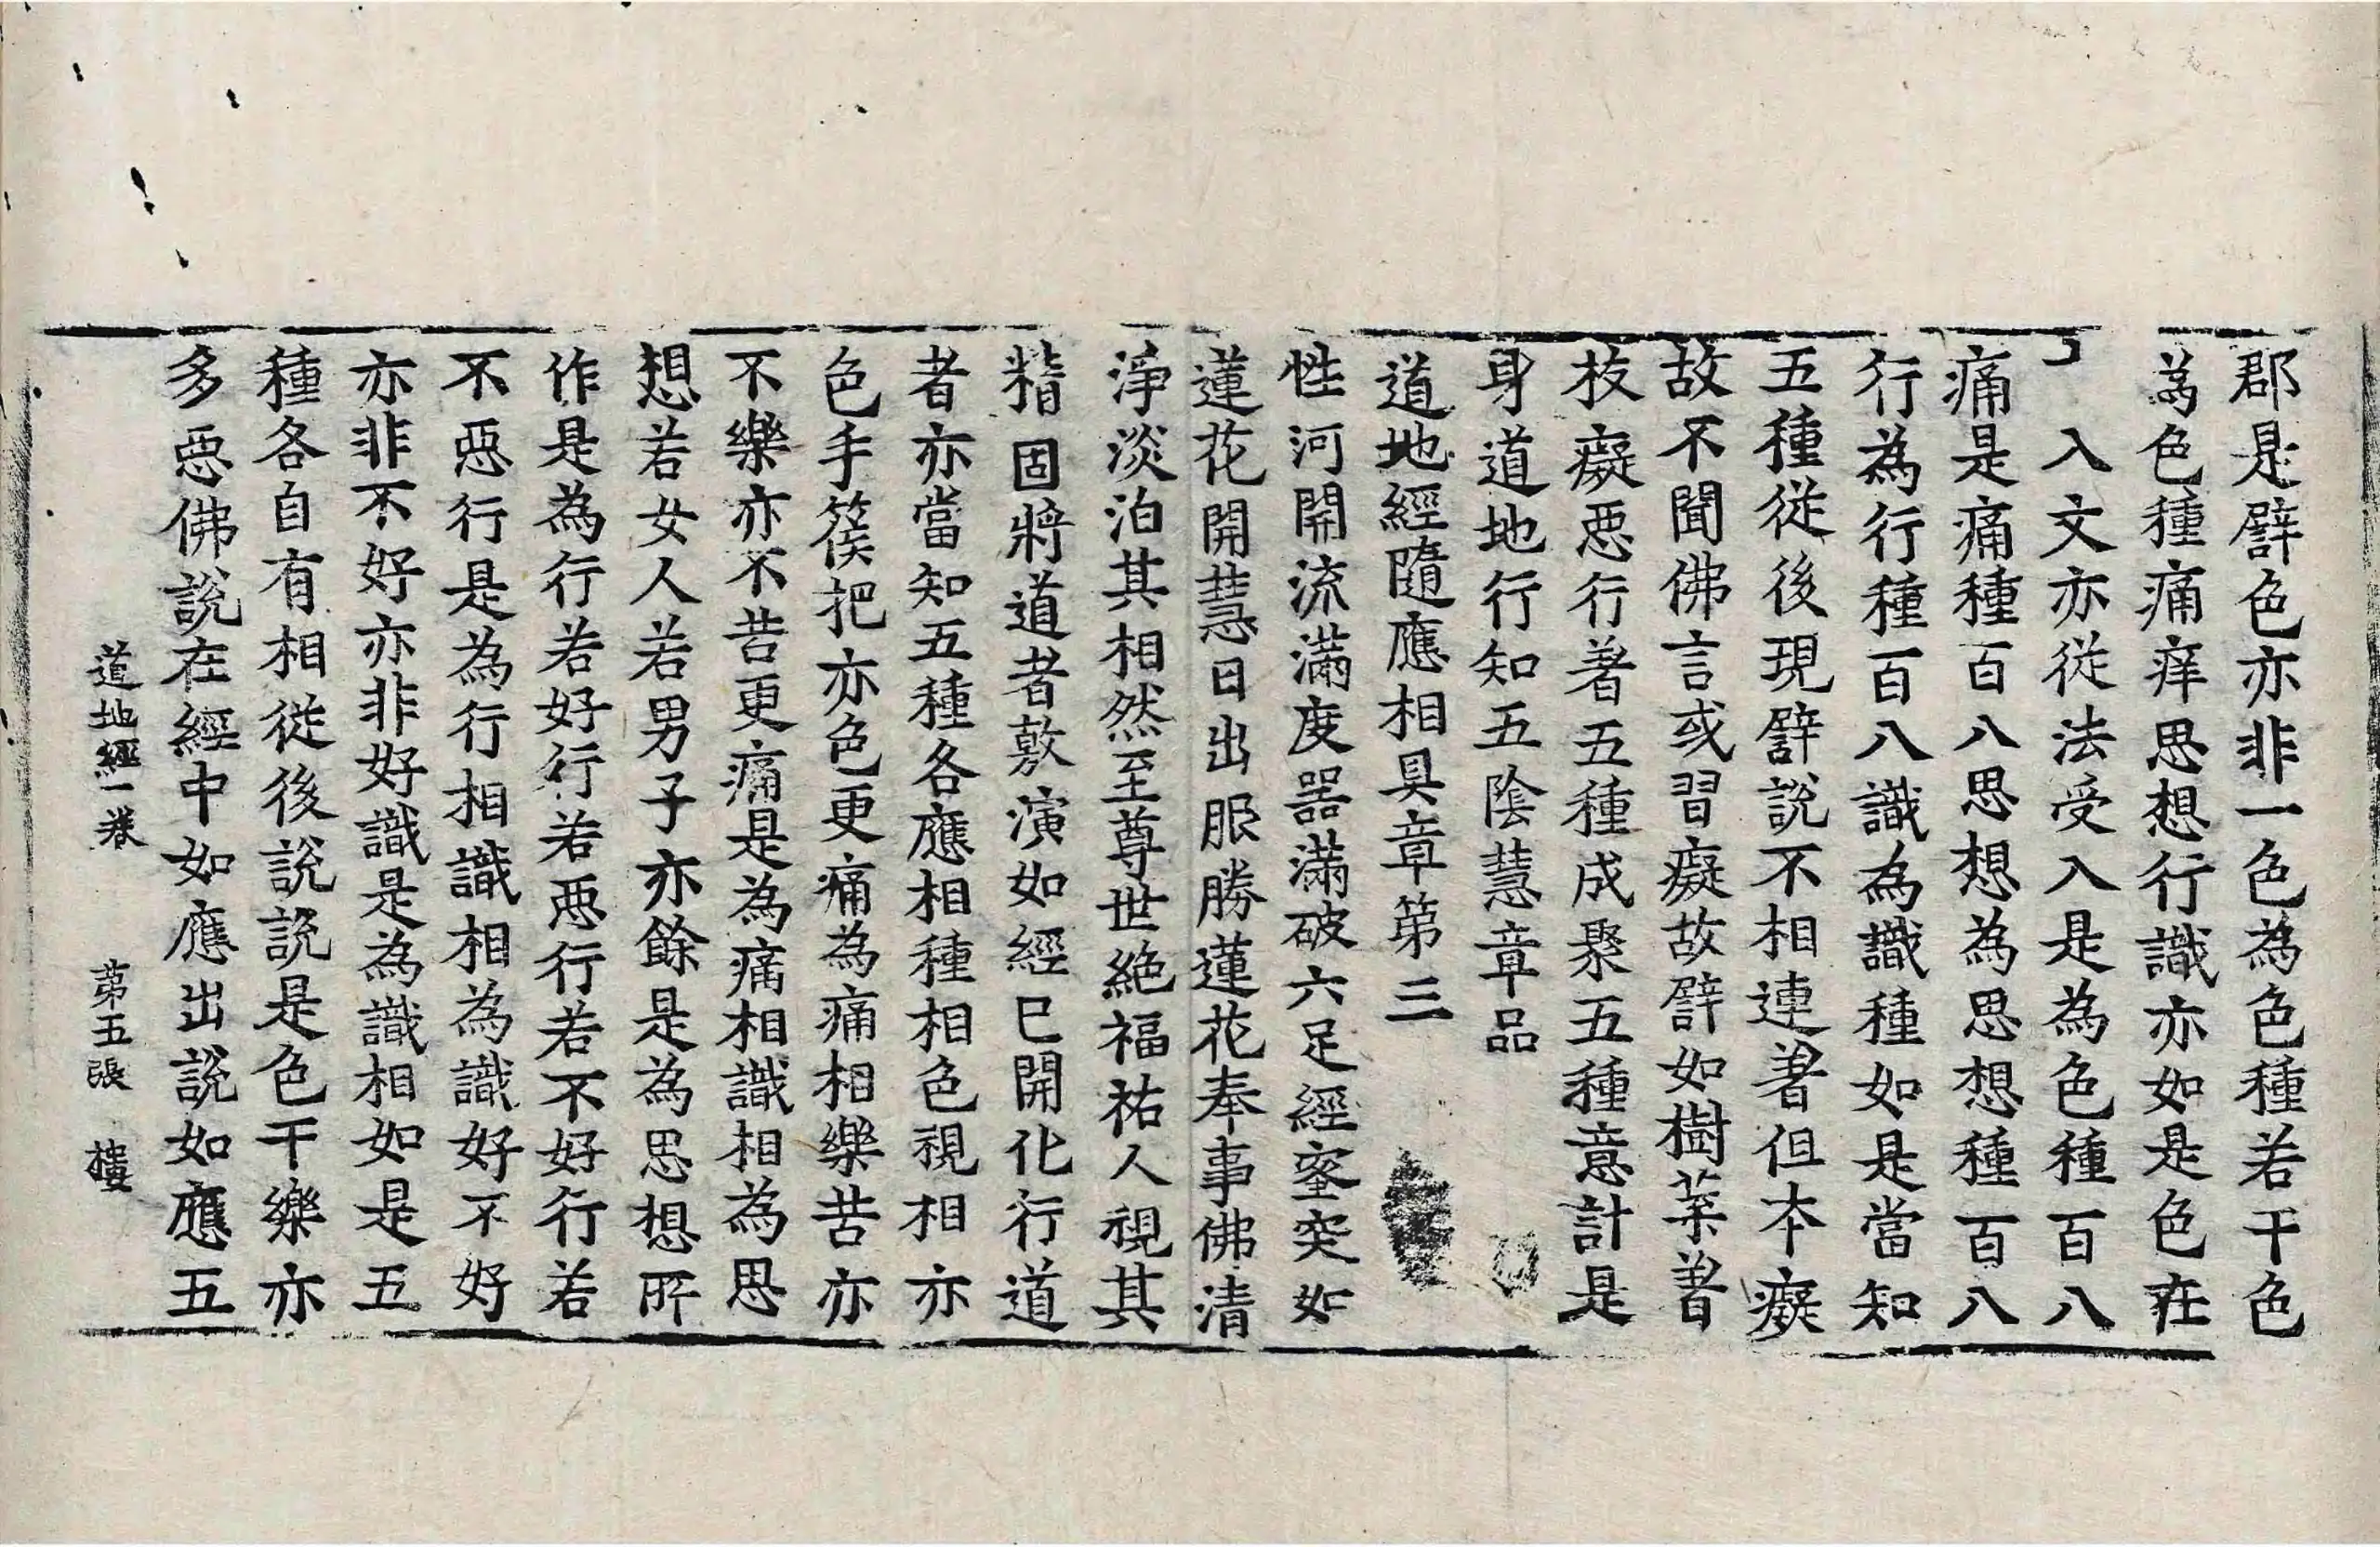 郡是譬色亦非一色為色種若干色
為色種痛痒思想行識亦如是色在
入文亦從法受入是為色種百八
痛是痛種百八思想為思想種百八
行為行種百八識為識種如是當知
五種從後現譬說不相連著但本癡
故不聞佛言或習癡故譬如樹葉著
枝癡惡行著五種成聚五種意計是
身道地行知五陰慧章品
道地經隨應相具章第三
性河開流滿度器滿破六足經蜜突如
蓮花開慧日出眼勝蓮花奉事佛清
淨淡泊其相然至尊世絕福祐人視其
㨗固將道者敷演如經已開化行道
者亦當知五種各應相種相色視相亦
色手篌把亦色更痛為痛相樂苦亦
不樂亦不苦更痛是為痛相識相為思
想若女人若男子亦餘是為思想所
作是為行若好行若惡行若不好行若
不惡行是為行相識相為識好不好
亦非不好亦非好識是為識相如是五
種各自有相從後說說是色干樂亦
多惡佛說在經中如應出說如應五
道地經一卷 第五張 樓